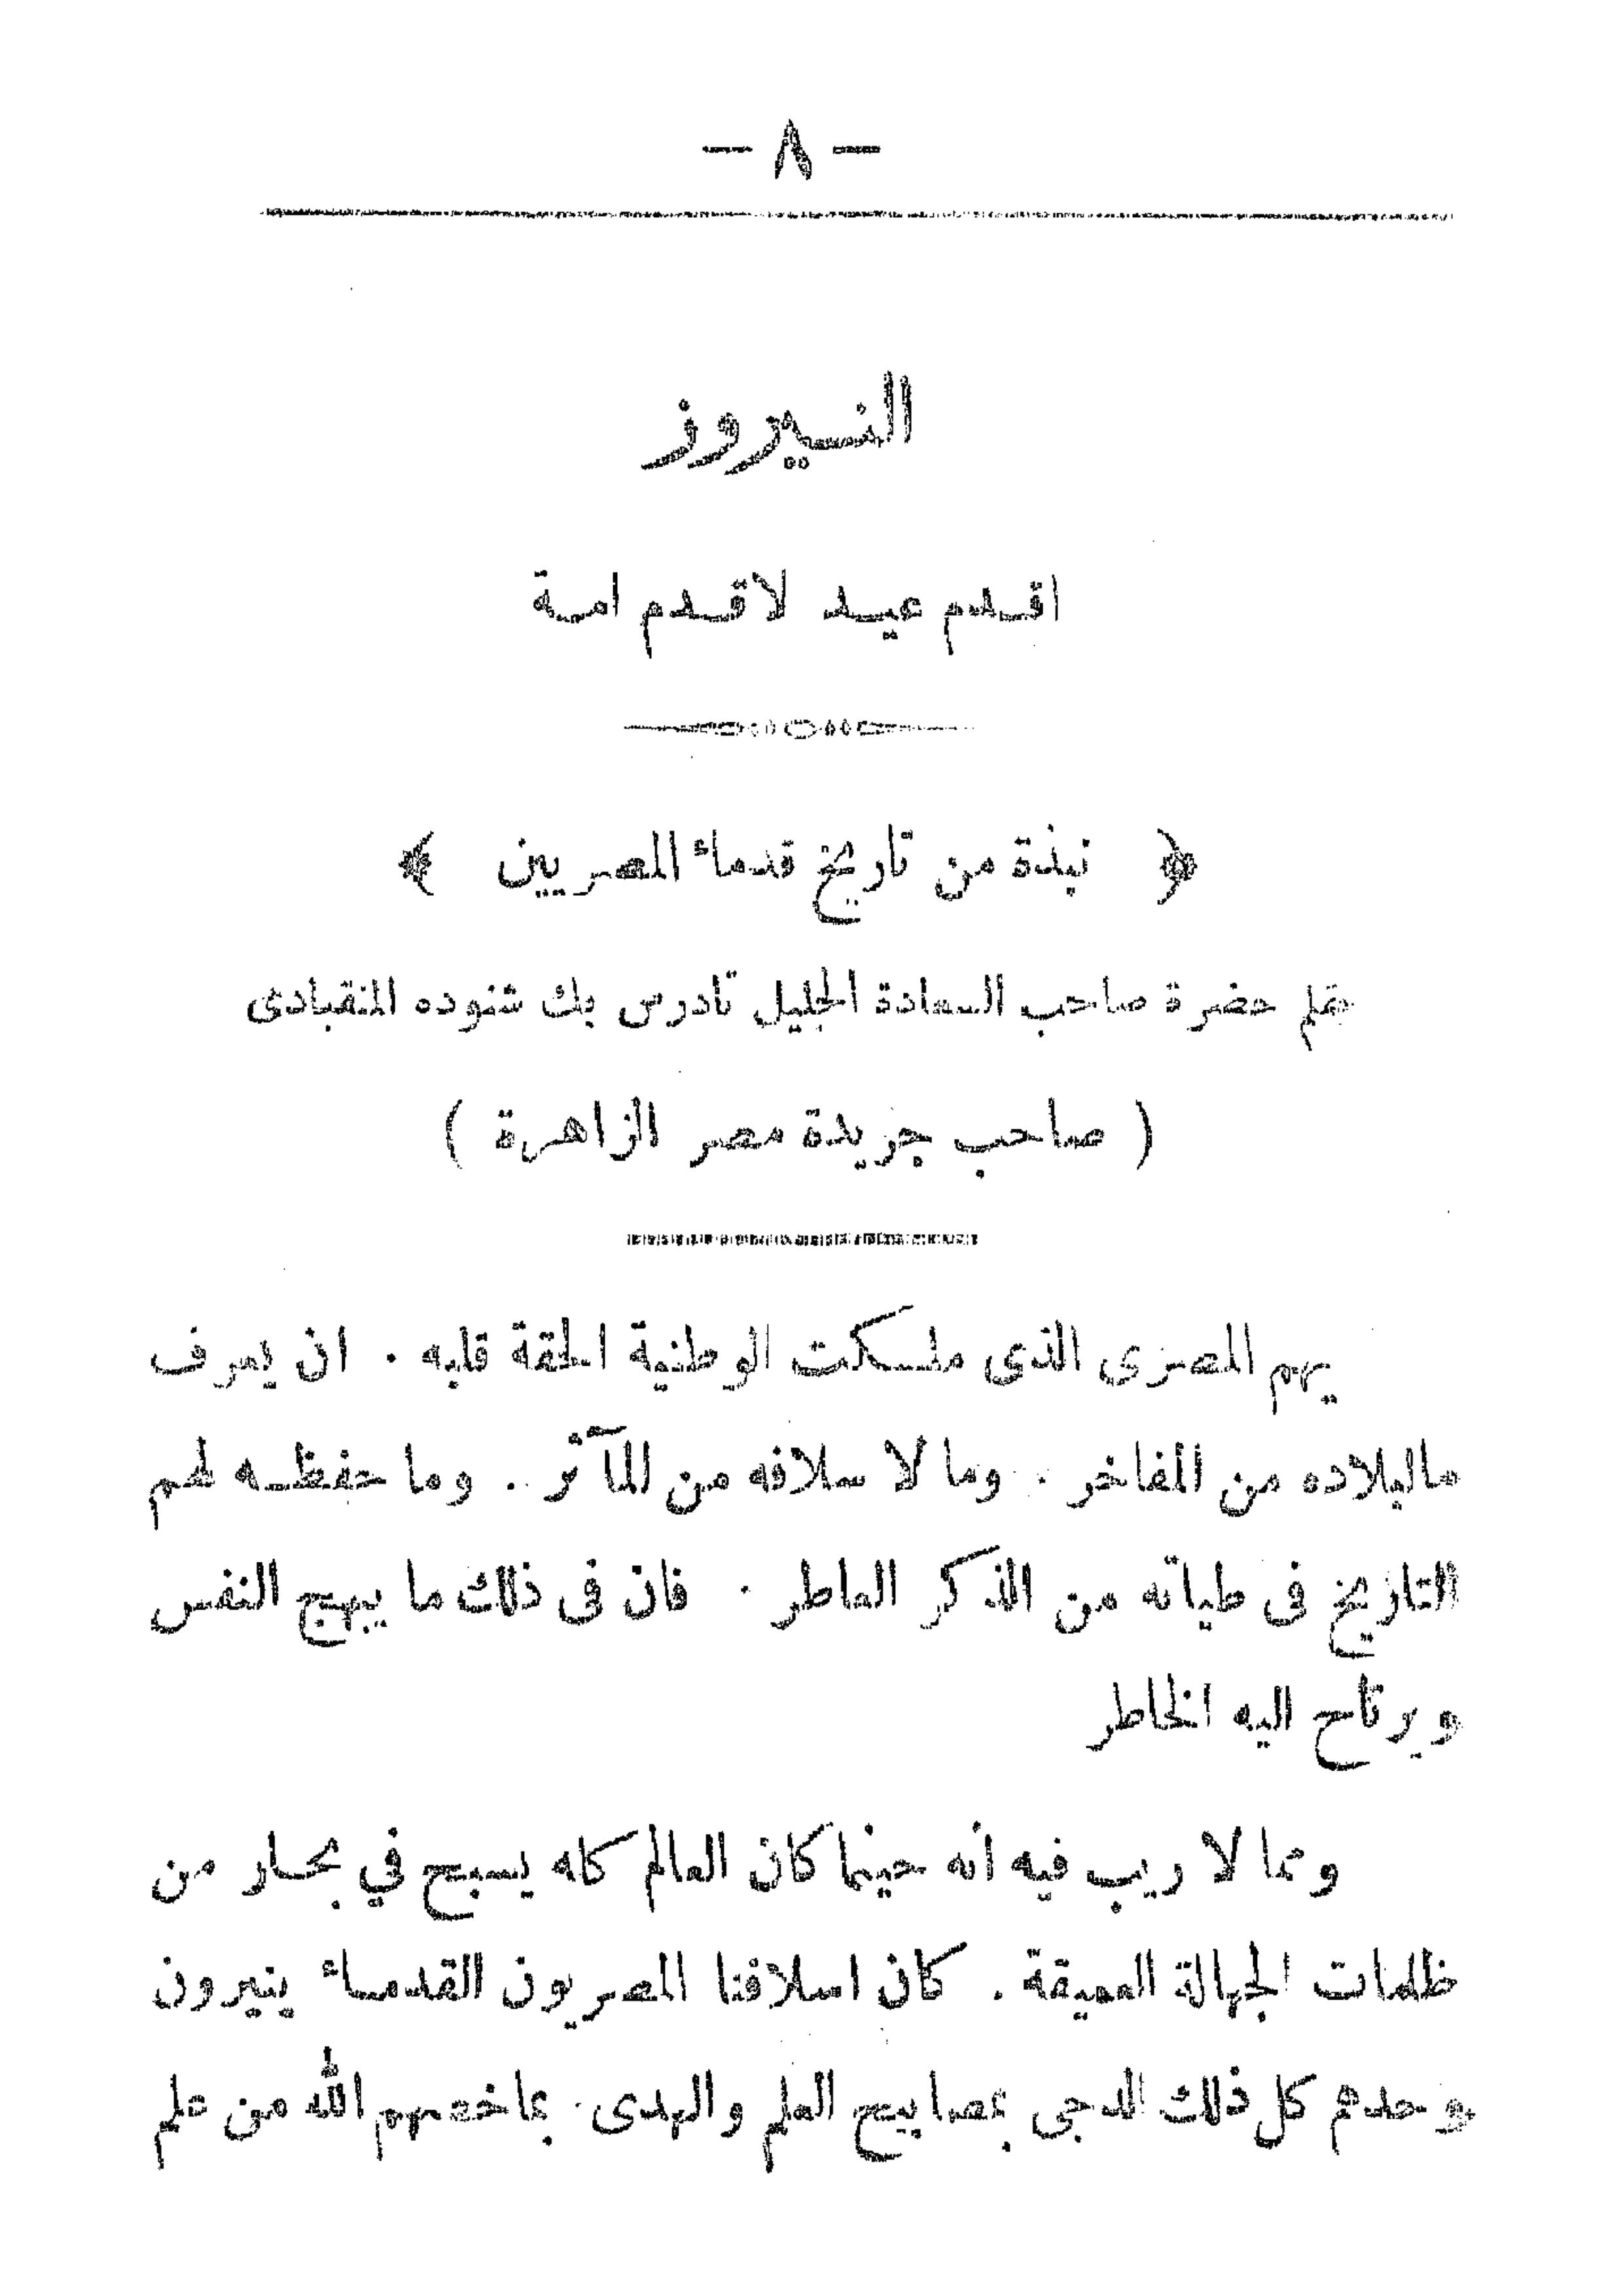 — ٨ —
النسيروز
اقدم عيد لاقدم امة
﴿ نبذة من تاريخ قدماء المصريين ﴾
بقلم حضرة صاحب السعادة الجليل تادرس بك شنوده المنقبادى
( صاحب جريدة مصر الزاهرة )
يهم المصرى الذى ملكت الوطنية الحقة قلبه . ان يعرف
مالبلاده من المفاخر . وما لا سلافه من المآثر . وما حفظه لهم
التاريخ فى طياته من الذكر العاطر . فان فى ذلك ما يبهج النفس
ويرتاح اليه الخاطر
ومما لا ريب فيه أنه حينما كان العالم كله يسبح في بحار من
ظلمات الجهالة العميقة . كان اسلافنا المصريون القدماء ينيرون
وحدهم كل ذلك الدجى بمصابيح العلم والهدى . بما خصهم الله من علم